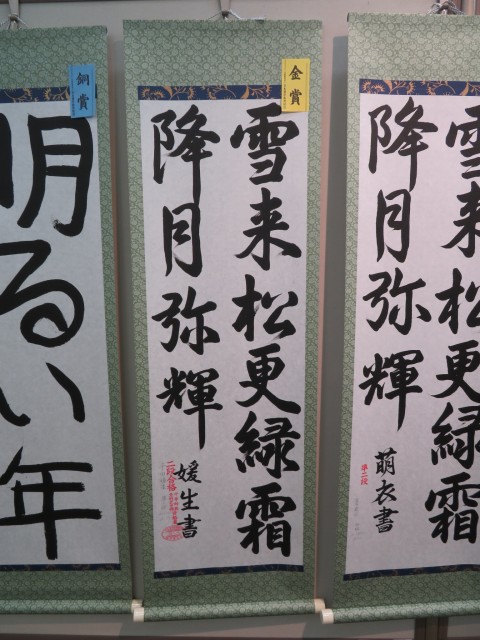 銅賞
明るい年
金賞
雪来松更緑霜
降月弥輝
媛生書
二段合格
雪来松更緑霜
降月弥輝
萌衣書
準二段